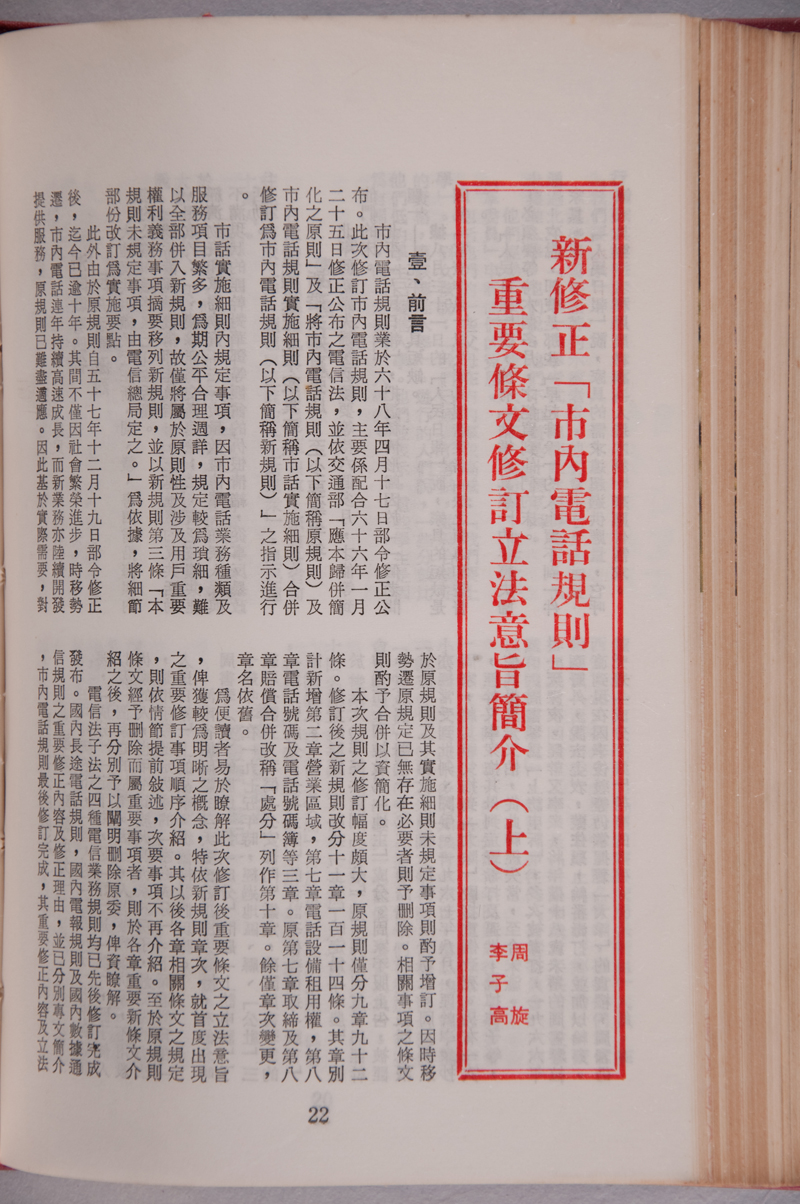 新修正「市內電話規則」
重要條文修訂立法意旨簡介（上）
周旋
李子高
壹、前言
市內電話規則業於六十八年四月十七日部令修正公
布。此次修訂市內電話規則，主要係配合六十六年一月
二十五日修正公布之電信法，並依交通部「應本歸併簡
化之原則」及「將市內電話規則（以下簡稱原規則）及
市內電話規則實施細則（以下簡稱市話實施細則）合併
修訂爲市內電話規則（以下簡稱新規則）」之指示進行
。
市話實施細則內規定事項，因市內電話業務種類及
服務項目繁多，爲期公平合理週詳，規定較爲瑣細，難
以全部併入新規則，故僅將屬於原則性及涉及用戶重要
權利義務事項摘要移列新規則，並以新規則第三條「本
規則未規定事項，由電信總局定之。」爲依據，將細節
部份改訂爲實施要點。
此外由於原規則自五十七年十二月十九日部令修正
後，迄今已逾十年。其間不僅因社會繁榮進步，時移勢
遷，市內電話連年持續高速成長，而新業務亦陸續開發
提供服務，原規則已難盡適應。因此基於實際需要，對
於原規則及其實施細則未規定事項則酌予增訂。因時移
勢遷原規定已無存在必要者則予刪除。相關事項之條文
則酌予合併以資簡化。
本次規則之修訂幅度頗大，原規則僅分九章九十二
條。修訂後之新規則改分十一章一百一十四條。其章別
計新增第二章營業區域，第七章電話設備租用權，第八
章電話號碼及電話號碼簿等三章。原第七章取締及第八
章賠償合併改稱「處分」列作第十章。餘僅章次變更，
章名依舊。
爲便讀者易於瞭解此次修訂後重要條文之立法意旨
，俾獲較爲明晰之概念，特依新規則章次，就首度出現
之重要修訂事項順序介紹。其以後各章相關條文之規定
，則依情節提前敍述，次要事項不再介紹。至於原規則
條文經予刪除而屬重要事項者，則於各章重要新條文介
紹之後，再分別予以闡明刪除原委，俾資瞭解。
電信法子法之四種電信業務規則均已先後修訂完成
發布。國內長途電話規則，國內電報規則及國內數據通
信規則之重要修正內容及修正理由，並已分別專文簡介
，市內電話規則最後修訂完成，其重要修正內容及立法
22